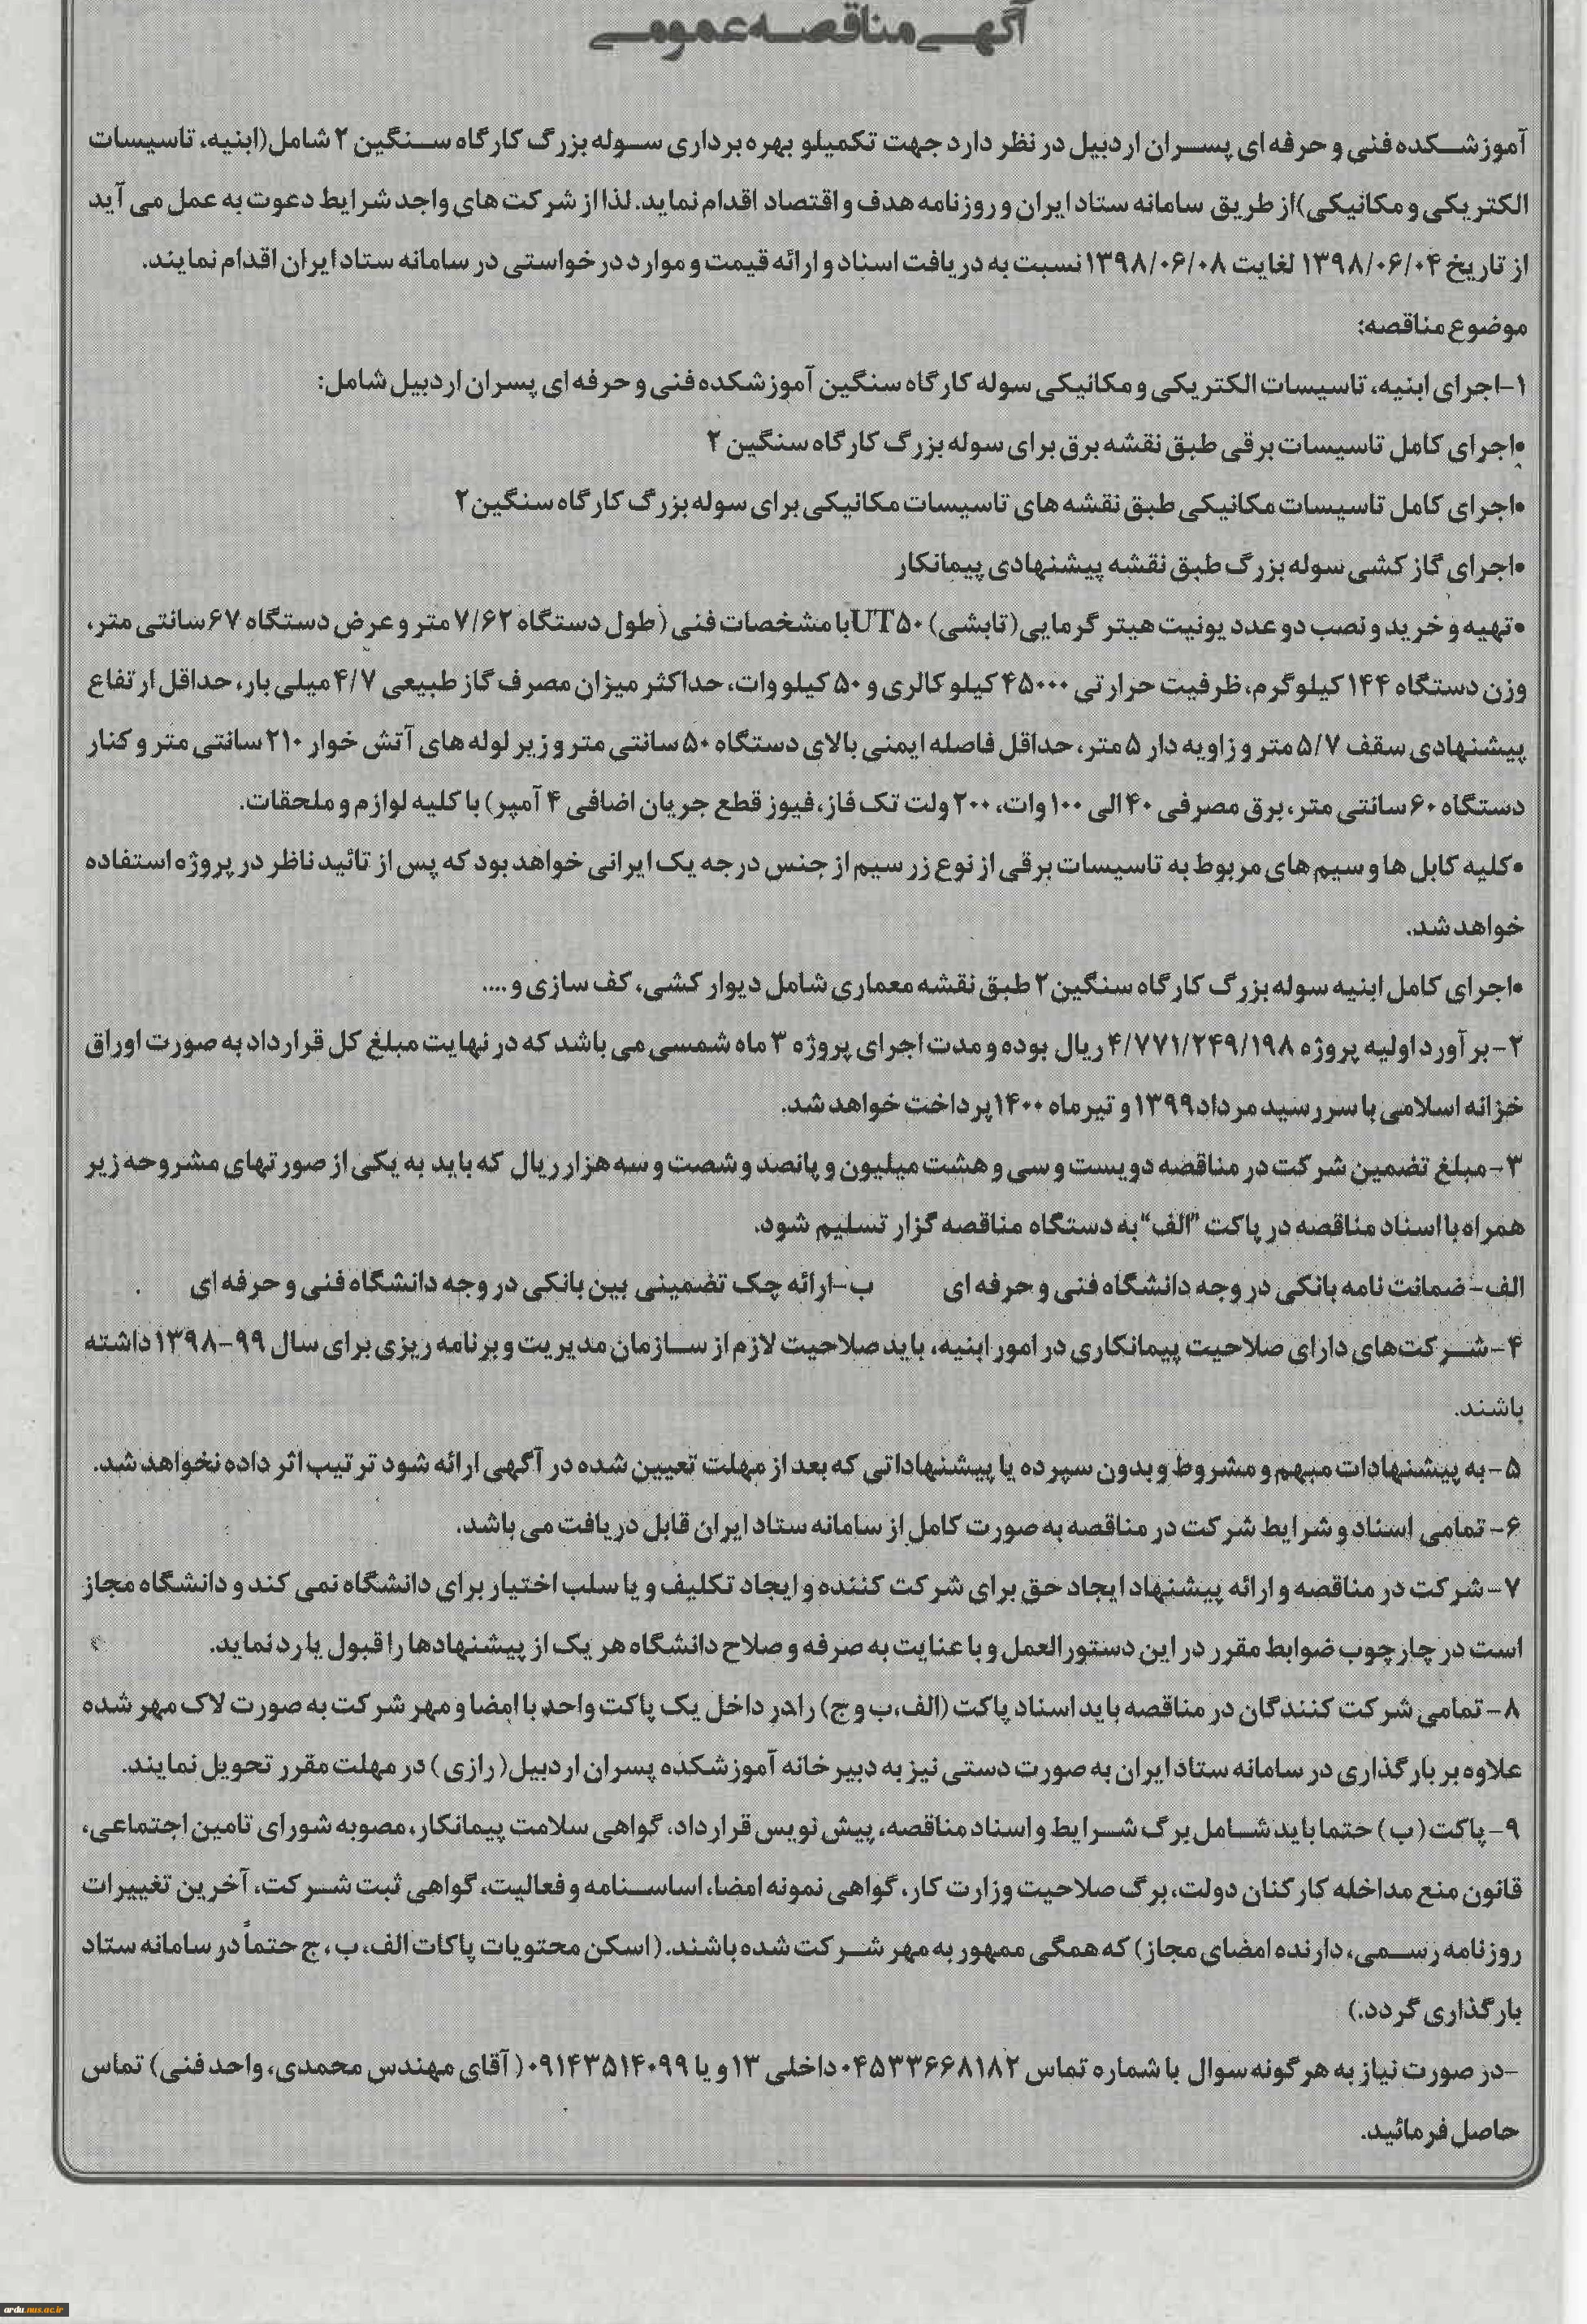 آگهی مناقصه عمومی
آموزشکده فنی و حرفه ای پسران اردبیل در نظر دارد جهت تکمیلو بهره برداری سوله بزرگ کارگاه سنگین ۲ شامل(ابنیه، تاسیسات
الکتریکی و مکانیکی)از طریق سامانه ستاد ایران و روزنامه هدف و اقتصاد اقدام نماید. لذا از شرکت های واجد شرایط دعوت به عمل می آید
از تاریخ ۱۳۹۸/۰۶/۰۴ لغایت ۱۳۹۸/۰۶/۰۸ نسبت به دریافت اسناد و ارائه قیمت و موارد درخواستی در سامانه ستاد ایران اقدام نمایند.
موضوع مناقصه:
۱-اجرای ابنیه، تاسیسات الکتریکی و مکانیکی سوله کارگاه سنگین آموزشکده فنی و حرفه ای پسران اردبیل شامل:
•اجرای کامل تاسیسات برقی طبق نقشه برق برای سوله بزرگ کارگاه سنگین ۲
•اجرای کامل تاسیسات مکانیکی طبق نقشه های تاسیسات مکانیکی برای سوله بزرگ کارگاه سنگین۲
•اجرای گاز کشی سوله بزرگ طبق نقشه پیشنهادی پیمانکار
•تهیه و خرید و نصب دو عدد یونیت هیتر گرمایی(تابشی) UT۵۰با مشخصات فنی (طول دستگاه ۷/۶۲ متر و عرض دستگاه ۶۷سانتی متر،
وزن دستگاه ۱۴۴ کیلوگرم، ظرفیت حرارتی ۴۵۰۰۰ کیلو کالری و ۵۰ کیلووات، حداکثر میزان مصرف گاز طبیعی ۴/۷ میلی بار، حداقل ارتفاع
پیشنهادی سقف ۵/۷ متر و زاویه دار ۵ متر، حداقل فاصله ایمنی بالای دستگاه ۵۰ سانتی متر و زیر لوله های آتش خوار ۲۱۰ سانتی متر و کنار
دستگاه ۶۰ سانتی متر، برق مصرفی ۴۰ الی ۱۰۰ وات، ۲۰۰ ولت تک فاز، فیوز قطع جریان اضافی ۴ آمپر) با کلیه لوازم و ملحقات.
•کلیه کابل ها و سیم های مربوط به تاسیسات برقی از نوع زر سیم از جنس درجه یک ایرانی خواهد بود که پس از تائید ناظر در پروژه استفاده
خواهد شد.
•اجرای کامل ابنیه سوله بزرگ کارگاه سنگین۲ طبق نقشه معماری شامل دیوار کشی، کف سازی و ....
۲-برآورد اولیه پروژه ۴/۷۷۱/۲۴۹/۱۹۸ ریال بوده و مدت اجرای پروژه ۳ ماه شمسی می باشد که در نهایت مبلغ کل قرارداد به صورت اوراق
خزانه اسلامی با سررسید مرداد۱۳۹۹ و تیرماه ۱۴۰۰پرداخت خواهد شد.
۳-مبلغ تضمین شرکت در مناقصه دویست و سی و هشت میلیون و پانصد و شصت و سه هزار ریال که باید به یکی از صورتهای مشروحه زیر
همراه با اسناد مناقصه در پاکت "الف" به دستگاه مناقصه گزار تسلیم شود.
الف-ضمانت نامه بانکی در وجه دانشگاه فنی و حرفه ای ب-ارائه چک تضمینی بین بانکی در وجه دانشگاه فنی و حرفه ای
۴-شرکت‌های دارای صلاحیت پیمانکاری در امور ابنیه، باید صلاحیت لازم از سازمان مدیریت و برنامه ریزی برای سال ۹۹-۱۳۹۸ داشته
باشند.
۵-به پیشنهادات مبهم و مشروط و بدون سپرده یا پیشنهاداتی که بعد از مهلت تعیین شده در آگهی ارائه شود ترتیب اثر داده نخواهد شد.
۶-تمامی اسناد و شرایط شرکت در مناقصه به صورت کامل از سامانه ستاد ایران قابل دریافت می باشد.
۷-شرکت در مناقصه و ارائه پیشنهاد ایجاد حق برای شرکت کننده و ایجاد تکلیف و یا سلب اختیار برای دانشگاه نمی کند و دانشگاه مجاز
است در چارچوب ضوابط مقرر در این دستورالعمل و با عنایت به صرفه و صلاح دانشگاه هر یک از پیشنهادها را قبول یا رد نماید.
۸-تمامی شرکت کنندگان در مناقصه باید اسناد پاکت (الف،ب و ج) رادر داخل یک پاکت واحد با امضا و مهر شرکت به صورت لاک مهر شده
علاوه بر بارگذاری در سامانه ستاد ایران به صورت دستی نیز به دبیرخانه آموزشکده پسران اردبیل(رازی) در مهلت مقرر تحویل نمایند.
۹-پاکت(ب) حتما باید شامل برگ شرایط و اسناد مناقصه، پیش نویس قرارداد، گواهی سلامت پیمانکار، مصوبه شورای تامین اجتماعی،
قانون منع مداخله کارکنان دولت، برگ صلاحیت وزارت کار، گواهی نمونه امضا، اساسنامه و فعالیت، گواهی ثبت شرکت، آخرین تغییرات
روزنامه رسمی، دارنده امضای مجاز) که همگی ممهور به مهر شرکت شده باشند. (اسکن محتویات پاکات الف، ب ، ج حتماً در سامانه ستاد
بارگذاری گردد.)
-در صورت نیاز به هر گونه سوال با شماره تماس ۰۴۵۳۳۶۶۸۱۸۲ داخلی ۱۳ و یا ۰۹۱۴۳۵۱۴۰۹۹ ( آقای مهندس محمدی، واحد فنی) تماس
حاصل فرمائید.
ardu.nus.ac.ir